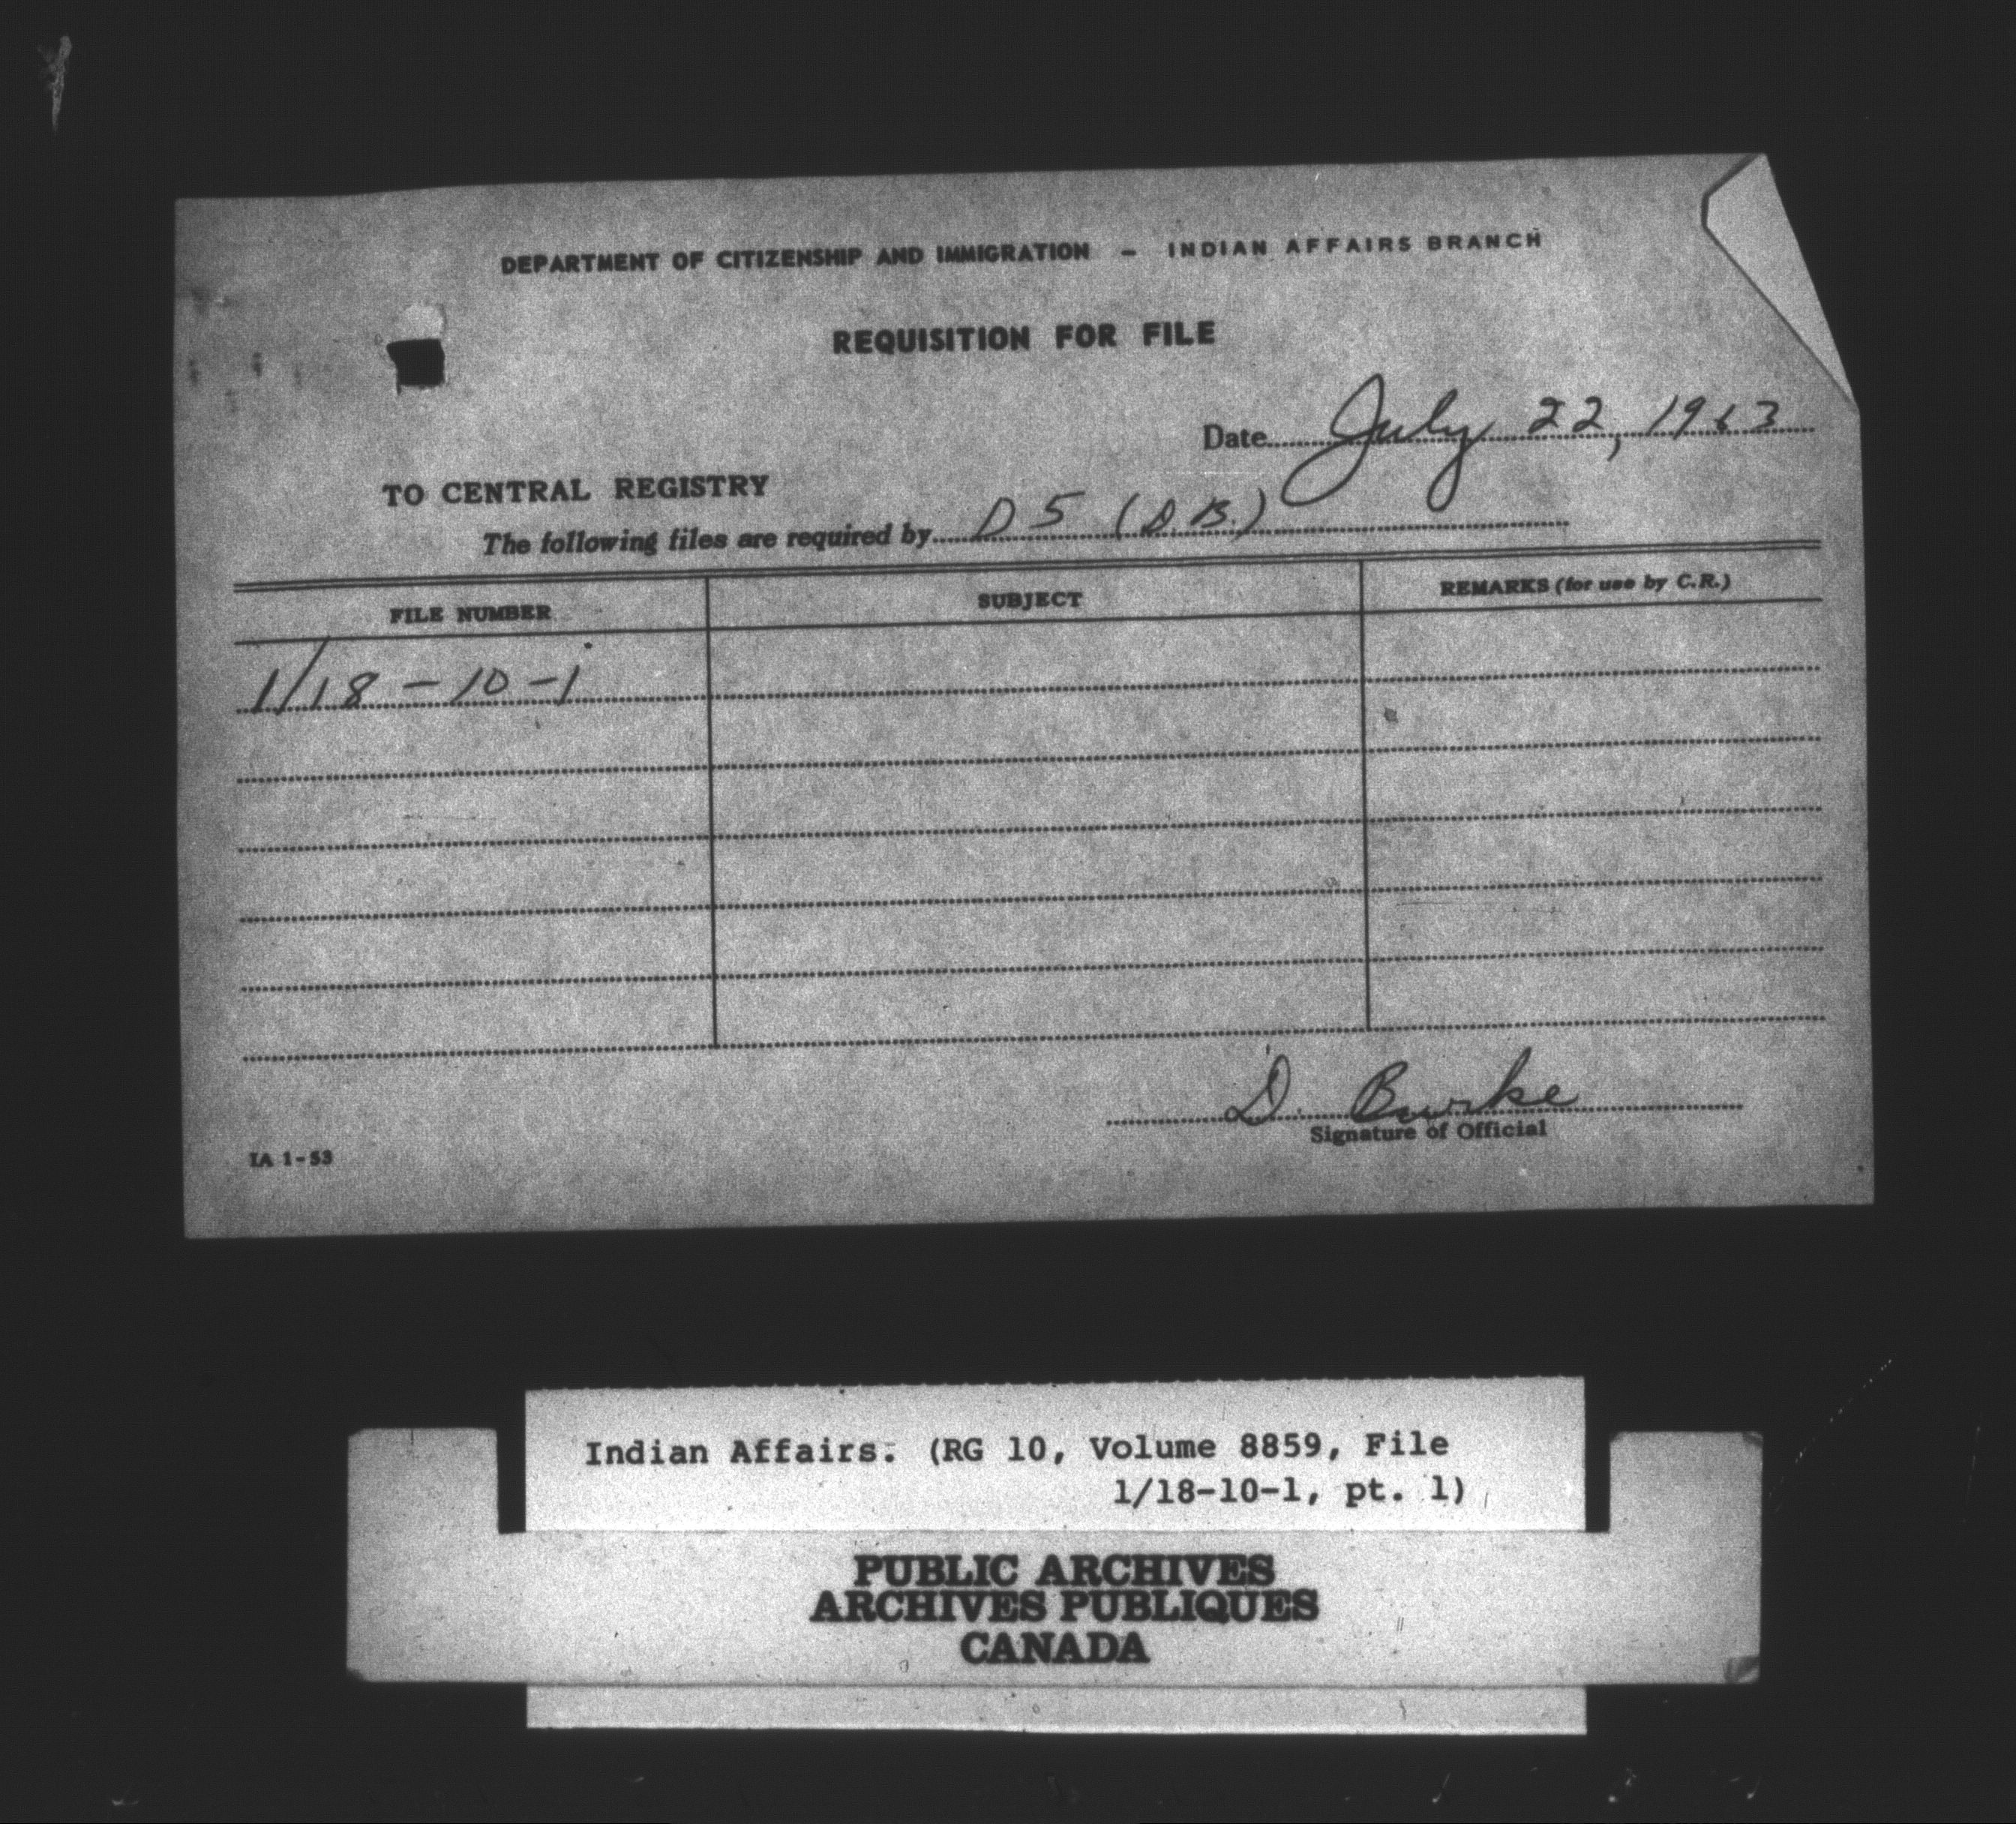 DEPARTMENT OF CITIZENSHIP AND IMMIGRATION - INDIAN AFFAIRS BRANCH
REQUISITION FOR FILE
Date July 22, 1963
TO CENTRAL REGISTRY
The following files are required by D5 (D.B.)
FILE NUMBER SUBJECT REMARKS (for use by C.R.)
1/18-10-1
D. Burke
Signature of Official
IA 1-53
Indian Affairs. (RG 10, Volume 8859, File
1/18-10-1, pt. 1)
PUBLIC ARCHIVES
ARCHIVES PUBLIQUES
CANADA